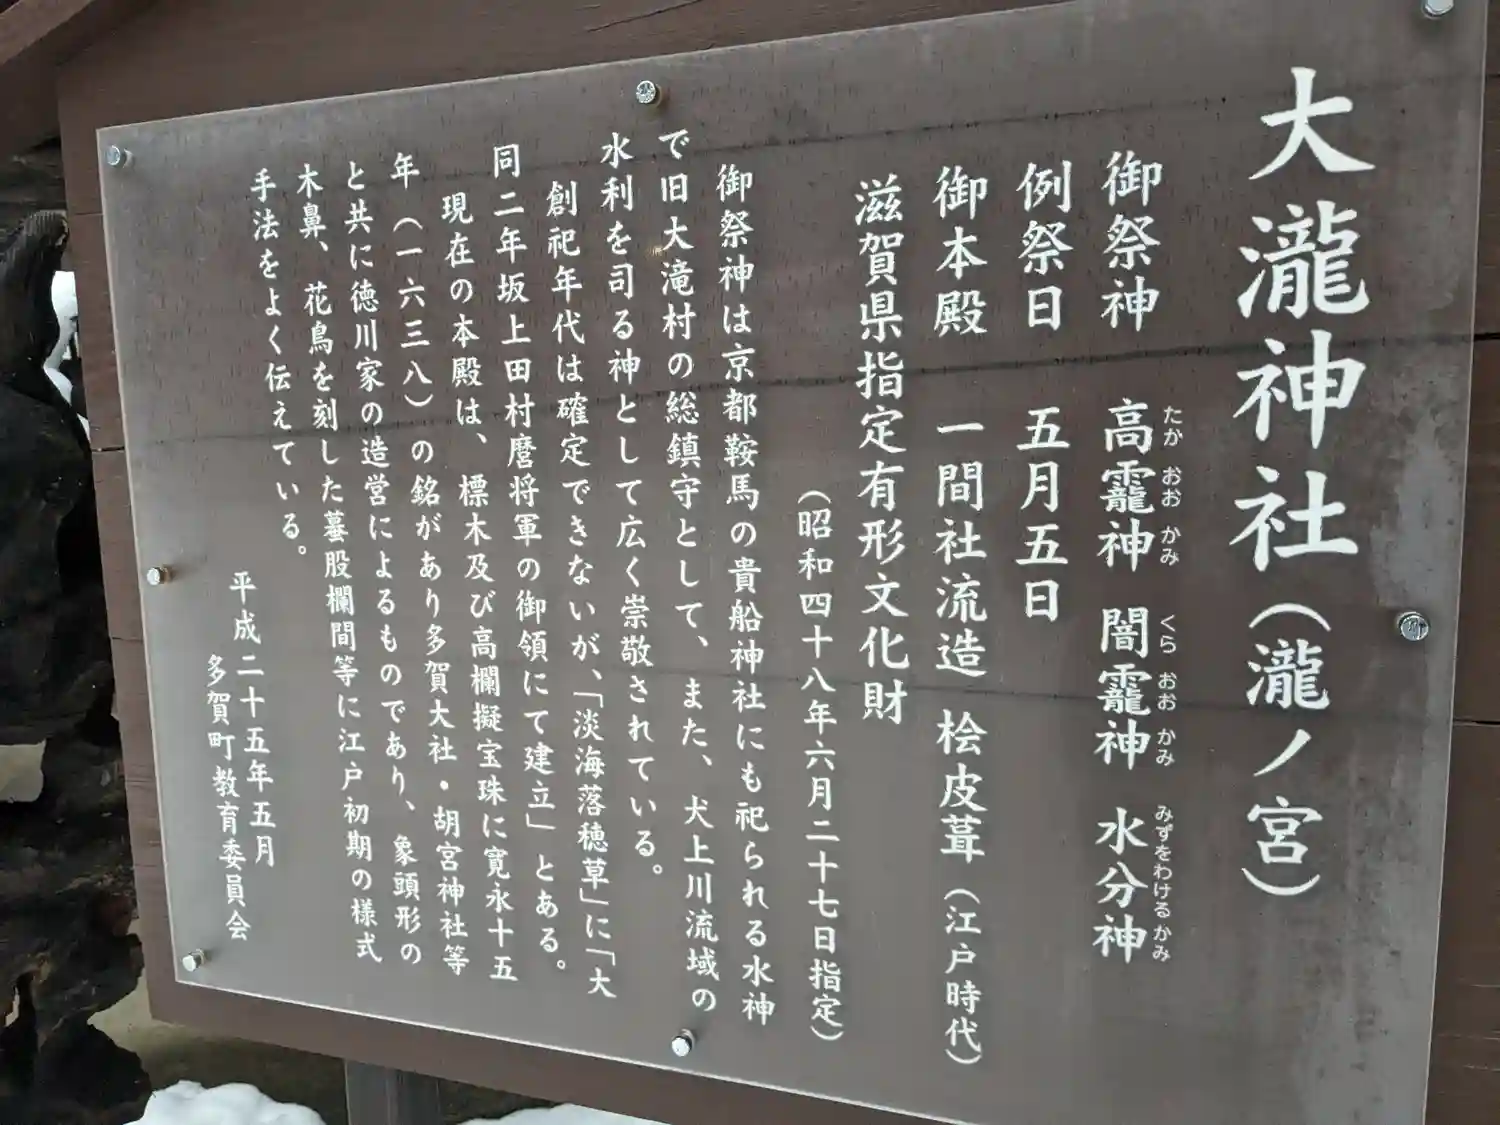 大瀧神社（瀧ノ宮）
御祭神　高龗神　闇龗神　水分神
たか おお かみ　くら おお かみ　みずをわけるかみ
例祭日　五月五日
御本殿　一間社流造　桧皮葺（江戸時代）
滋賀県指定有形文化財
（昭和四十八年六月二十七日指定）
御祭神は京都鞍馬の貴船神社にも祀られる水神
で旧大滝村の総鎮守として、また、犬上川流域の
水利を司る神として広く崇敬されている。
創祀年代は確定できないが、「淡海落穂草」に「大
同二年坂上田村麿将軍の御領にて建立」とある。
現在の本殿は、標木及び高欄擬宝珠に寛永十五
年（一六三八）の銘があり多賀大社・胡宮神社等
と共に徳川家の造営によるものであり、象頭形の
木鼻、花鳥を刻した蟇股欄間等に江戸初期の様式
手法をよく伝えている。
平成二十五年五月
多賀町教育委員会